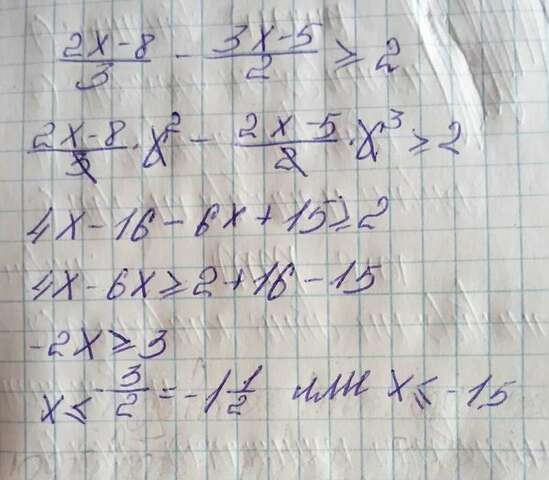 (2x-8)/3 - (3x-5)/2 ≥ 2
(2x-8)/3 · 6² - (2x-5)/2 · 6³ ≥ 2
4x-16-6x+15≥2
4x-6x≥2+16-15
-2x≥3
x≤ -3/2 = -1 1/2 или x≤-15